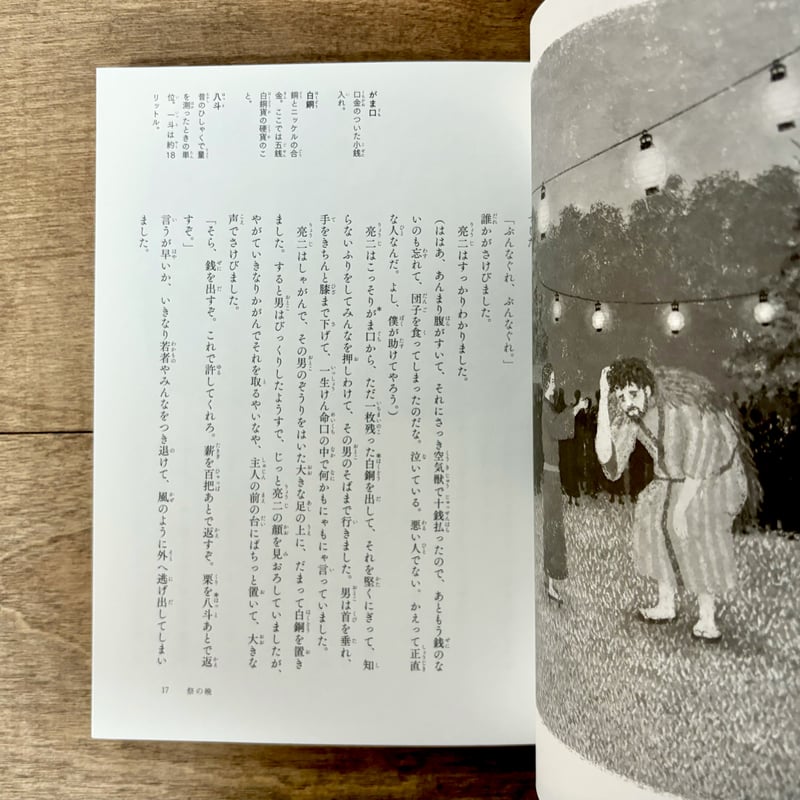 がま口
口金のついた小銭
入れ。
白銅
銅とニッケルの合
金。ここでは五銭
白銅貨の硬貨のこ
と。
八斗
昔のひしゃくで量
を測ったときの単
位。一斗は約18
リットル。
「ぶんなぐれ、ぶんなぐれ。」
誰かがさけびました。
亮二はすっかりわかりました。
(ははあ、あんまり腹がすいて、それにさっき空気獣で十銭払ったので、あともう銭のな
いのも忘れて、団子を食ってしまったのだな。泣いている。悪い人でない。かえって正直
な人なんだ。よし、僕が助けてやろう。)
亮二はこっそりがま口から、ただ一枚残った白銅を出して、それを堅くにぎって、知
らないふりをしてみんなを押しわけて、その男のそばまで行きました。男は首を垂れ、
手をきちんと膝まで下げて、一生けん命口の中で何かもにゃもにゃ言っていました。
亮二はしゃがんで、その男のぞうりをはいた大きな足の上に、だまって白銅を置き
ました。すると男はびっくりしたようすで、じっと亮二の顔を見おろしていましたが、
やがていきなりかがんでそれを取るやいなや、主人の前の台にぱちっと置いて、大きな
声でさけびました。
「そら、銭を出すぞ。これで許してくれろ。薪を百把あとで返すぞ。栗を八斗あとで返
すぞ。」
言うが早いか、いきなり若者やみんなをつき退けて、風のように外へ逃げ出してしまい
ました。
17 祭の晩